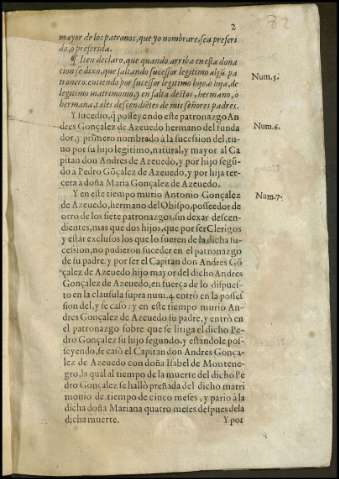 2
82
mayor de los patronos, que yo nombrare, sea preferi
da, o preferida.
¶ Iten declaro, que quando arriba en esta dona
cion se dixo, que faltando sucessor legitimo algũ pa
tronero, entiendo por sucessor legitimo hijo ò hija, de
legitimo matrimonio, y en falta destos, hermano, o
hermana, tales descendiẽtes de mis señores padres.
Num.5.
Y sucedio, q̃ posseyendo este patronazgo An
dres Gonçalez de Azeuedo hermano del funda
dor, y primero nombrado à la sucession del, tu-
uo por su hijo legitimo, natural, y mayor al Ca
pitan don Andres de Azeuedo, y por hijo segũ-
do a Pedro Gõçalez de Azeuedo, y por hija ter-
cera à doña Maria Gonçalez de Azeuedo.
Num.6.
Y en este tiempo murio Antonio Gonçalez
de Azeuedo, hermano del Obispo, posseedor de
otro de los siete patronazgos, sin dexar descen-
dientes, mas que dos hijos, que por ser Clerigos
y estàr exclusos los que lo fueren de la dicha su-
cession, no pudieron suceder en el patronazgo
de su padre, y por ser el Capitan don Andres Gõ
çalez de Azeuedo hijo mayor del dicho Andres
Gonçalez de Azeuedo, en fuerça de lo dispues-
to en la clausula supra num.4. entrò en la posses
sion del, y se casò: y en este tiempo murio An-
dres Gonçalez de Azeuedo su padre, y entrò en
el patronazgo sobre que se litiga el dicho Pe-
dro Gonçalez su hijo segundo, y estandole pos-
seyendo, se casò el Capitan don Andres Gonça-
lez de Azeuedo con doña Isabel de Montene-
gro, la qual al tiempo de la muerte del dicho Pe
dro Gonçalez, se hallò preñada del dicho matri
monio de tiempo de cinco meses, y pariò à la
dicha doña Mariana quatro meses despues de la
dicha muerte.
Num.7.
Y por